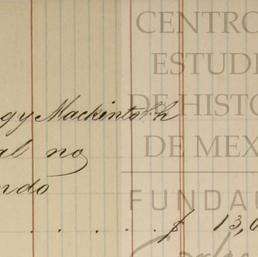 CENTRO
ESTUDI
DE HISTO
DE MEX
FUNDAC
gy Mackintosh
al no
ndo
. . . . . $ 13,0